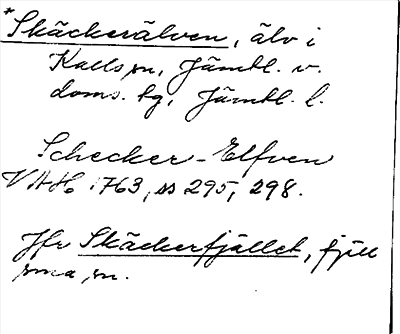 *Skäckerälven, älv i
Kalls sn, Jämtl. v.
doms. tg, Jämtl. l.
Schecker-Elfven
VAH 1763, ss 295, 298.
Jfr Skäckerfjället, fjäll
sma sn.